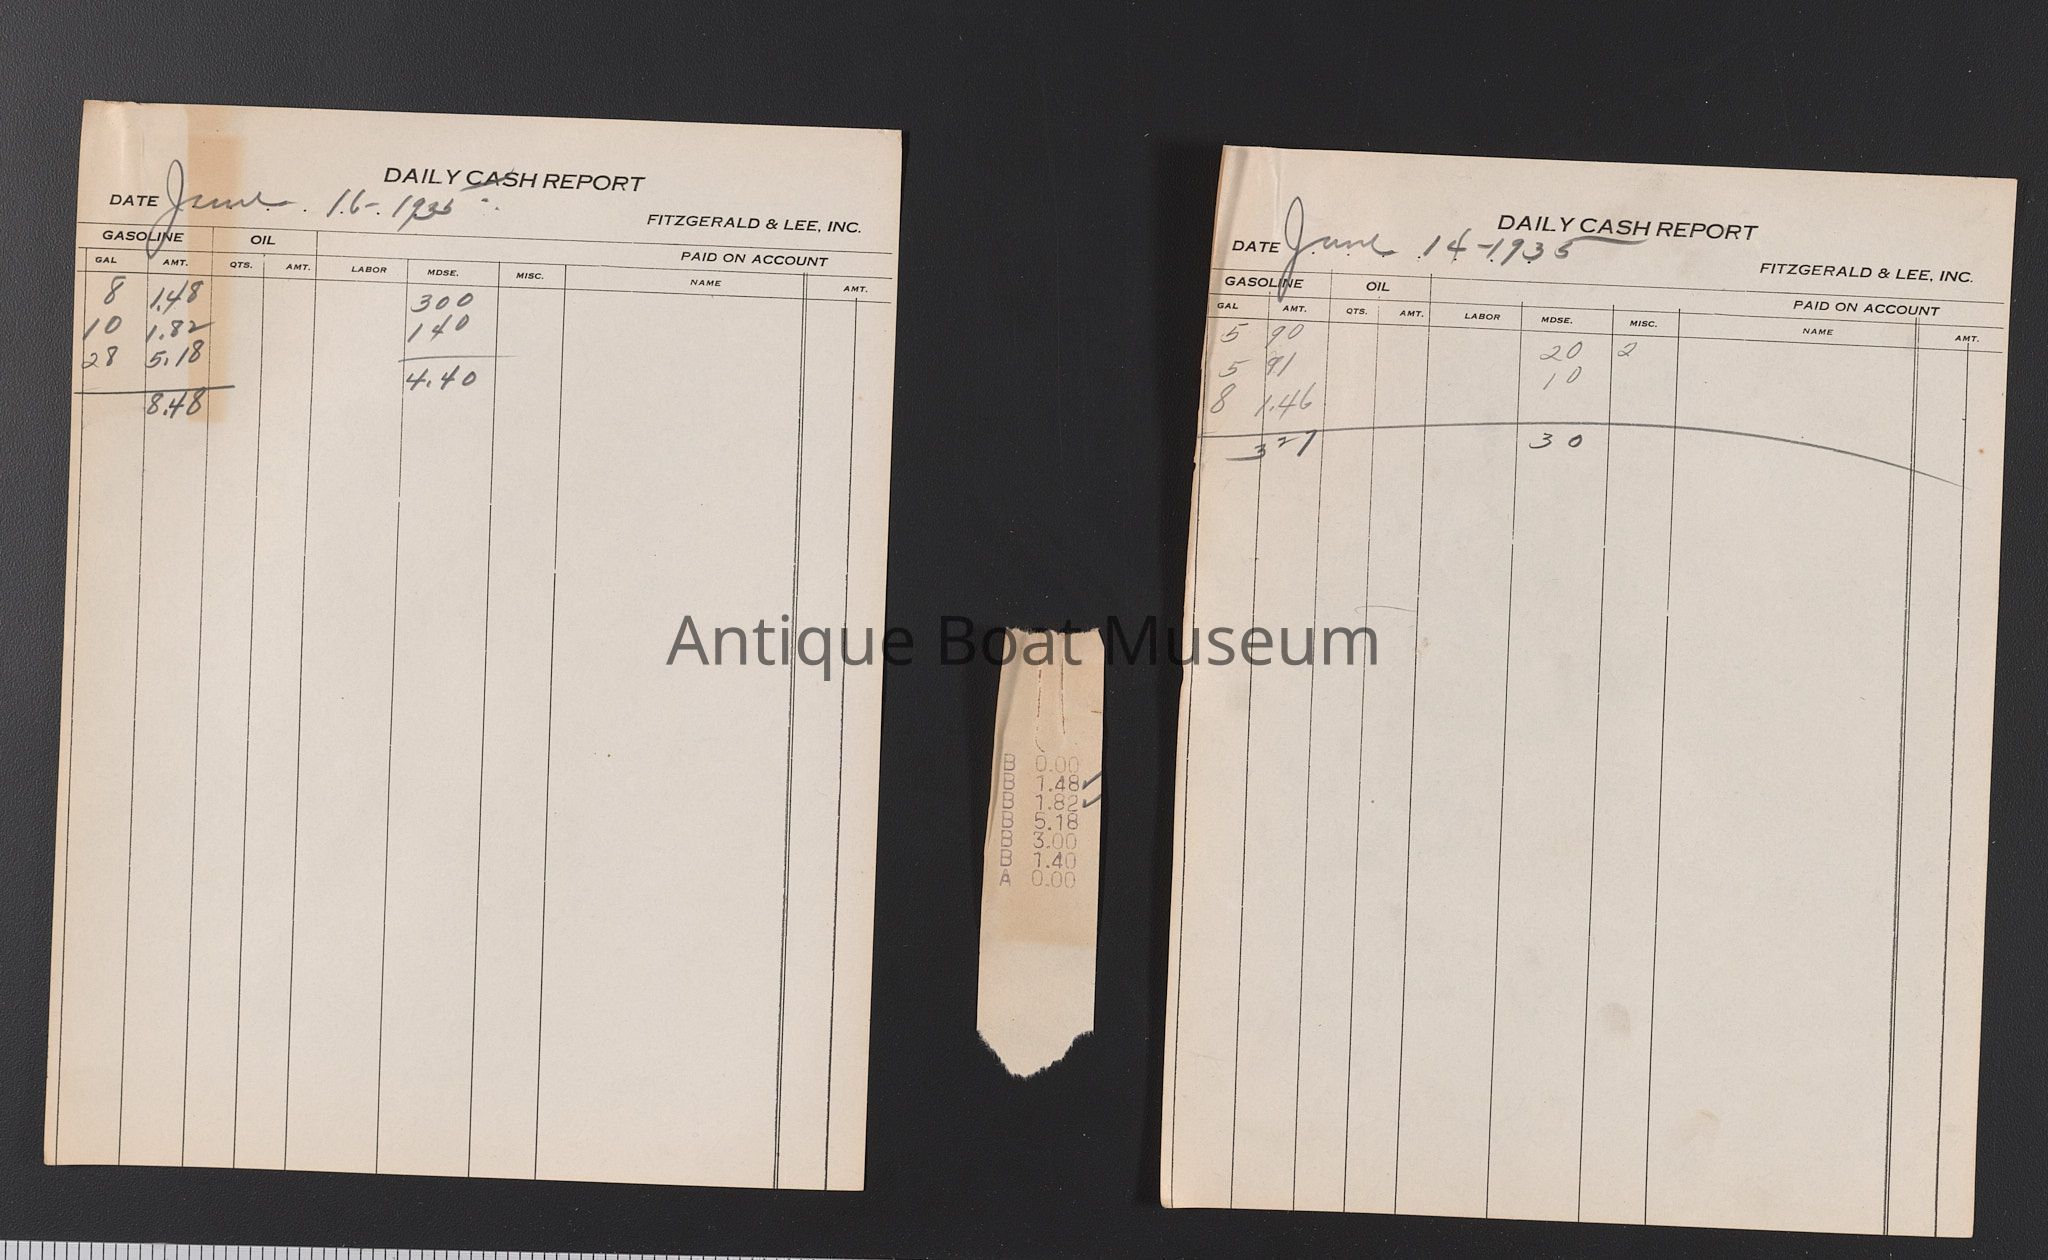 DAILY CASH REPORT
DATE June 16-1935
FITZGERALD & LEE, INC.
GASOLINE OIL PAID ON ACCOUNT
GAL AMT. QTS. AMT. LABOR MDSE. MISC. NAME AMT.
8 1.48 300
10 1.82 140
28 5.18
4.40
8.48
Antique Boat Museum
B 0.00
B 1.48
B 1.82
B 5.18
B 3.00
B 1.40
A 0.00
DAILY CASH REPORT
DATE June 14-1935
FITZGERALD & LEE, INC.
GASOLINE OIL PAID ON ACCOUNT
GAL AMT. QTS. AMT. LABOR MDSE. MISC. NAME AMT.
5 90 20 2
5 91 10
8 1.46
327 30